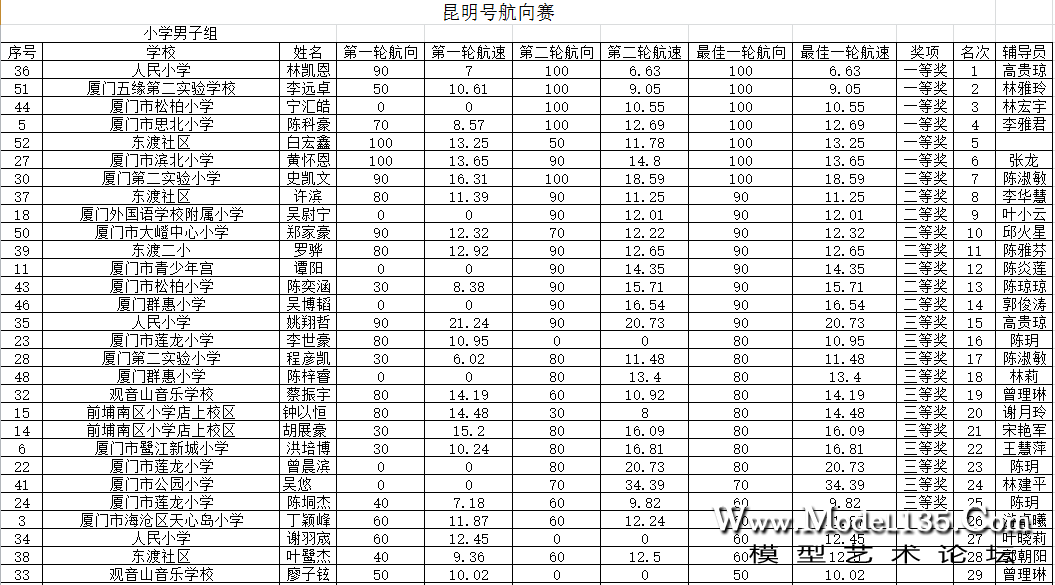 昆明号航向赛
小学男子组
序号 学校 姓名 第一轮航向 第一轮航速 第二轮航向 第二轮航速 最佳一轮航向 最佳一轮航速 奖项 名次 辅导员
36 人民小学 林凯恩 90 7 100 6.63 100 6.63 一等奖 1 高贵琼
51 厦门五缘第二实验学校 李远卓 50 10.61 100 9.05 100 9.05 一等奖 2 林雅玲
44 厦门市松柏小学 宁汇皓 0 0 100 10.55 100 10.55 一等奖 3 林宏宇
5 厦门市思北小学 陈科豪 70 8.57 100 12.69 100 12.69 一等奖 4 李雅君
52 东渡社区 白宏鑫 100 13.25 50 11.78 100 13.25 一等奖 5
27 厦门市滨北小学 黄怀恩 100 13.65 90 14.8 100 13.65 一等奖 6 张龙
30 厦门第二实验小学 史凯文 90 16.31 100 18.59 100 18.59 二等奖 7 陈淑敏
37 东渡社区 许滨 80 11.39 90 11.25 90 11.25 二等奖 8 李华慧
18 厦门外国语学校附属小学 吴尉宁 0 0 90 12.01 90 12.01 二等奖 9 叶小云
50 厦门市大嶝中心小学 郑家豪 90 12.32 70 12.22 90 12.32 二等奖 10 邱火星
39 东渡二小 罗骅 80 12.92 90 12.65 90 12.65 二等奖 11 陈雅芬
11 厦门市青少年宫 谭阳 0 0 90 14.35 90 14.35 二等奖 12 陈焱莲
43 厦门市松柏小学 陈奕涵 30 8.38 90 15.71 90 15.71 二等奖 13 陈琼琼
46 厦门群惠小学 吴博韬 0 0 90 16.54 90 16.54 二等奖 14 郭俊涛
35 人民小学 姚翔哲 90 21.24 90 20.73 90 20.73 三等奖 15 高贵琼
23 厦门市莲龙小学 李世豪 80 10.95 0 0 80 10.95 三等奖 16 陈玥
28 厦门第二实验小学 程彦凯 30 6.02 80 11.48 80 11.48 三等奖 17 陈淑敏
48 厦门群惠小学 陈梓睿 0 0 80 13.4 80 13.4 三等奖 18 林莉
32 观音山音乐学校 蔡振宇 80 14.19 60 10.92 80 14.19 三等奖 19 曾理琳
15 前埔南区小学店上校区 钟以恒 80 14.48 30 8 80 14.48 三等奖 20 谢月玲
14 前埔南区小学店上校区 胡展豪 30 15.2 80 16.09 80 16.09 三等奖 21 宋艳军
6 厦门市鹭江新城小学 洪培博 30 10.24 80 16.81 80 16.81 三等奖 22 王慧萍
22 厦门市莲龙小学 曾晨滨 0 0 80 20.73 80 20.73 三等奖 23 陈玥
41 厦门市公园小学 吴悠 0 0 70 34.39 70 34.39 三等奖 24 林建平
24 厦门市莲龙小学 陈垌杰 40 7.18 60 9.82 60 9.82 三等奖 25 陈玥
3 厦门市海沧区天心岛小学 丁颖峰 60 11.87 60 12.24 26
34 人民小学 谢羽宬 60 12.45 0 0 60 12.45 三等奖 27 叶晓莉
38 东渡社区 叶鹭杰 40 9.36 60 12.5 60 28 郭朝阳
33 观音山音乐学校 廖子铉 50 10.02 0 0 50 10.02 三等奖 29 曾理琳
Www.Model135.Com
模型艺术论坛